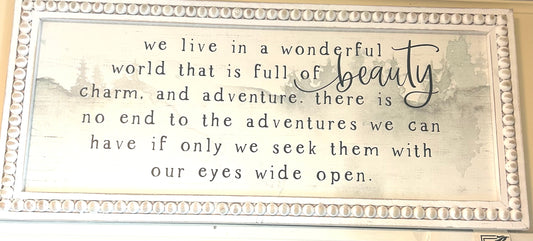 we live in a wonderful
world that is full of beauty
charm. and adventure. there is
no end to the adventures we can
have if only we seek them with
our eyes wide open.